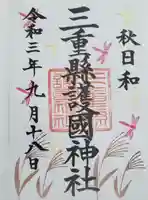 秋日和
三重縣護國神社
令和三年九月十八日